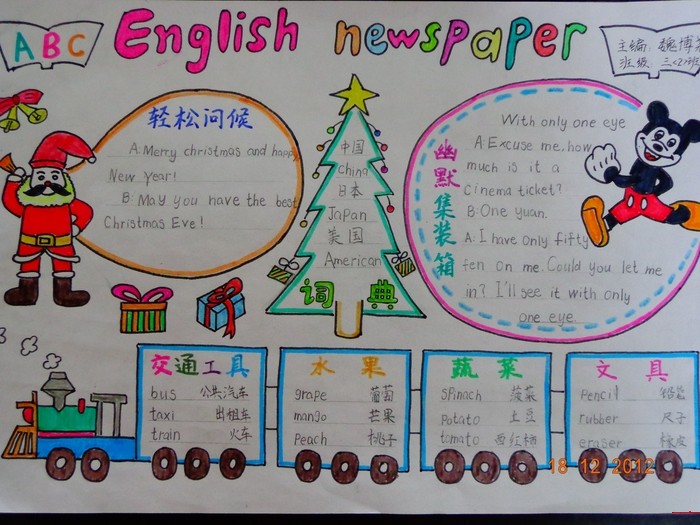 ABC
English newspaper
主编 魏博
班级 三<2>班
轻松问候
A: Merry christmas and happy
New year!
B: May you have the best
Christmas Eve!
中国
China
日本
Japan
美国
American
词典
幽默集装箱
With only one eye
A: Excuse me. how
much is it a
Cinema ticket?
B: One yuan.
A. I have only fifty
fen on me. Could you let me
in? I'll see it with only
one eye.
交通工具
bus 公共汽车
taxi 出租车
train 火车
水果
grape 葡萄
mango 芒果
Peach 桃子
蔬菜
SPinach 菠菜
Potato 土豆
tomato 西红柿
文具
Pencil 铅笔
rubber 尺子
eraser 橡皮
18 12 2012